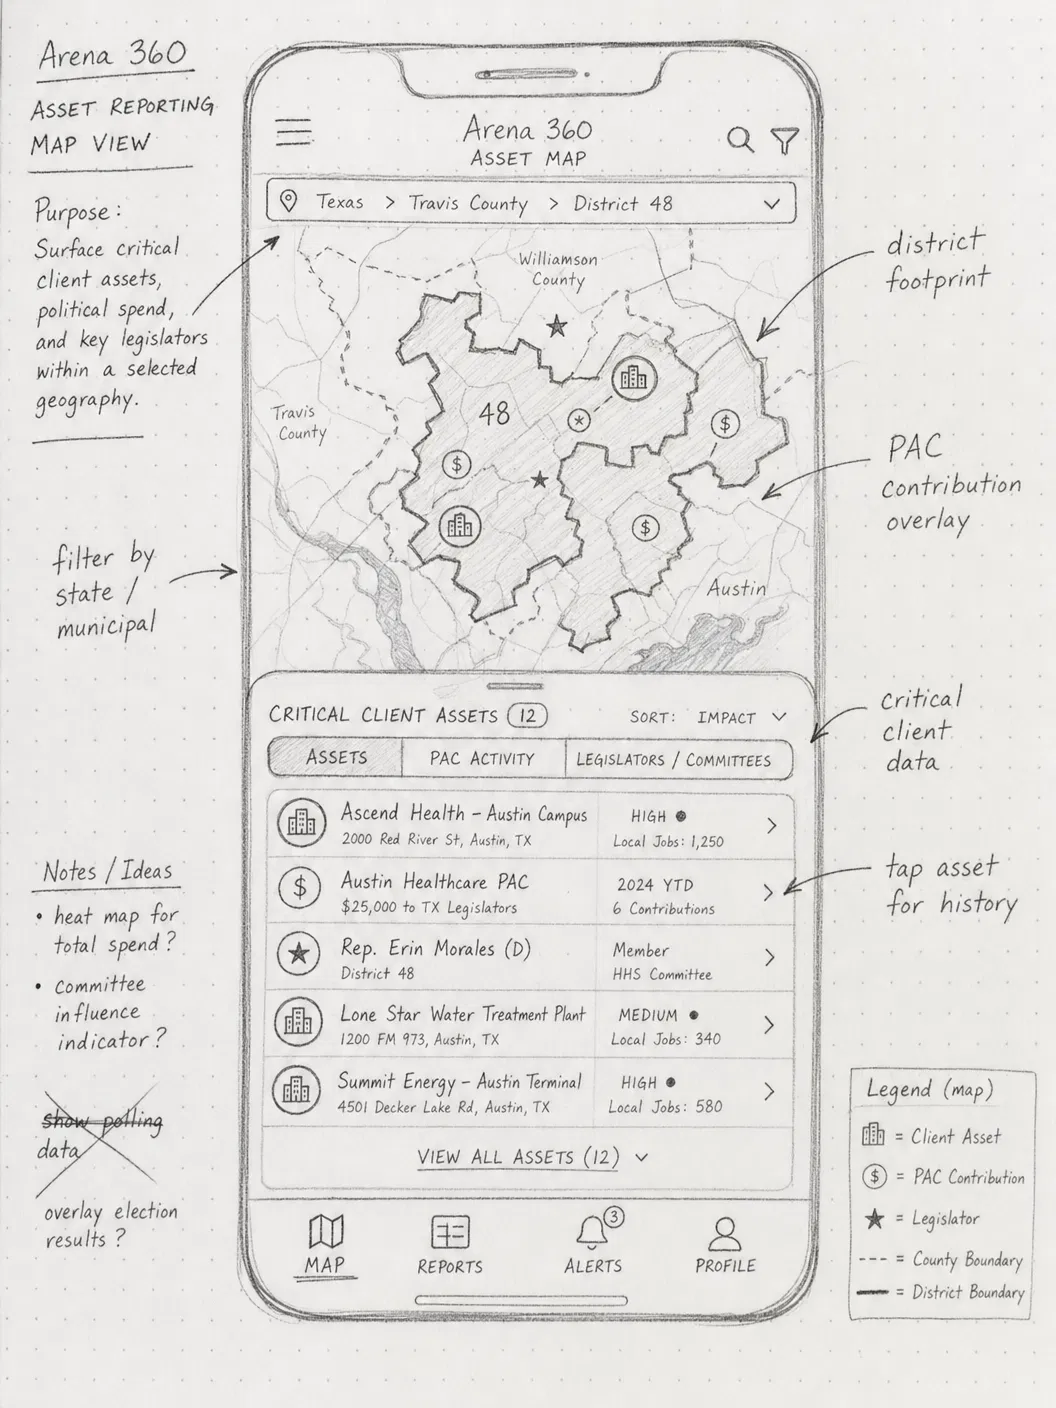 Arena 360
ASSET REPORTING
MAP VIEW
Purpose:
Surface critical
client assets,
political spend,
and key legislators
within a selected
geography.
filter by
state /
municipal
Notes / Ideas
• heat map for
total spend?
• committee
influence
indicator?
show polling
data
overlay election
results?
Arena 360
ASSET MAP
Texas > Travis County > District 48
Williamson
County
Travis
County
48
$
$
$
Austin
CRITICAL CLIENT ASSETS (12)
SORT: IMPACT
ASSETS
PAC ACTIVITY
LEGISLATORS / COMMITTEES
Ascend Health – Austin Campus
2000 Red River St, Austin, TX
HIGH ●
Local Jobs: 1,250
$
Austin Healthcare PAC
$25,000 to TX Legislators
2024 YTD
6 Contributions
Rep. Erin Morales (D)
District 48
Member
HHS Committee
Lone Star Water Treatment Plant
1200 FM 973, Austin, TX
MEDIUM ●
Local Jobs: 340
Summit Energy – Austin Terminal
4501 Decker Lake Rd, Austin, TX
HIGH ●
Local Jobs: 580
VIEW ALL ASSETS (12)
MAP
REPORTS
3
ALERTS
PROFILE
district
footprint
PAC
contribution
overlay
critical
client
data
tap asset
for history
Legend (map)
= Client Asset
$ = PAC Contribution
★ = Legislator
--- = County Boundary
— = District Boundary